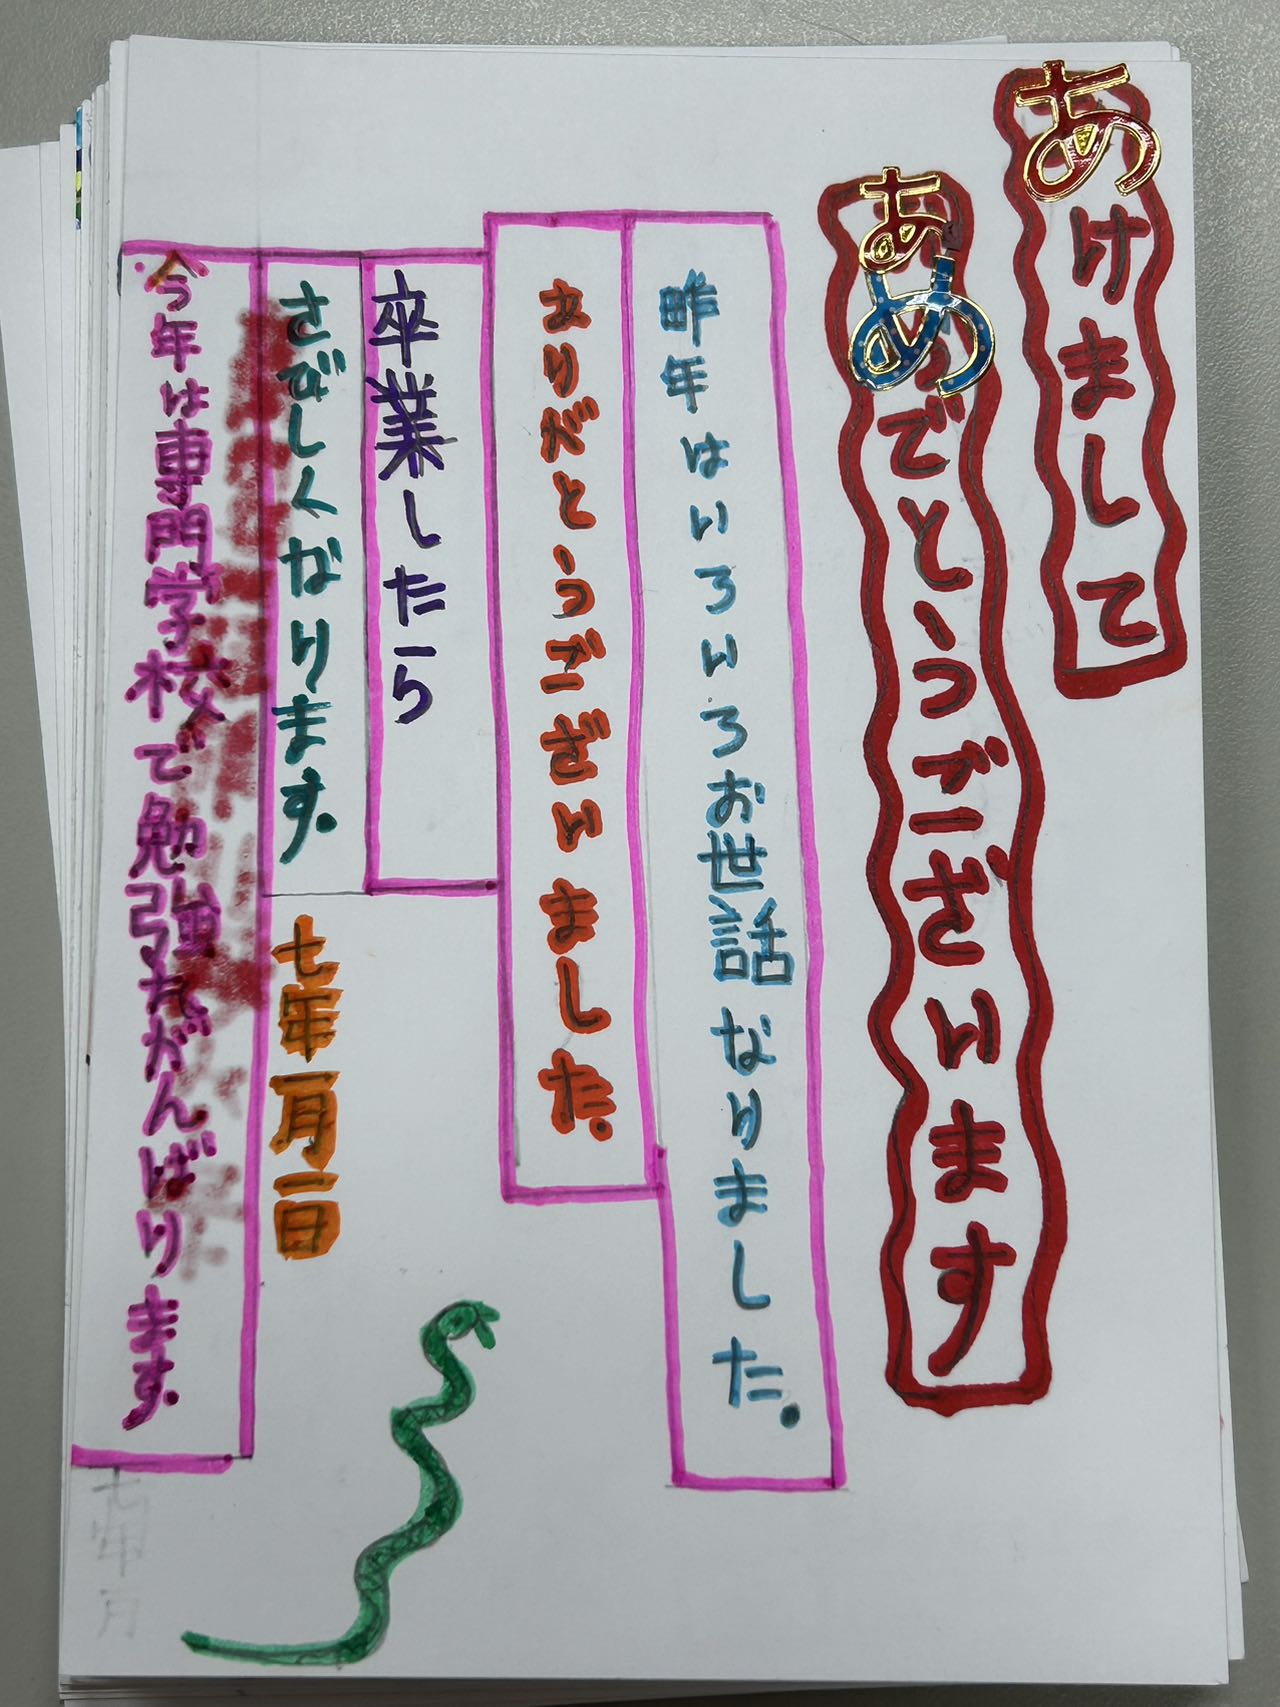 あけまして
あめでとうございます
昨年はいろいろお世話なりました。
ありがとうございました。
卒業したら
さびしくなります。
七年一月一日
今年は専門学校で勉強れがんばります。